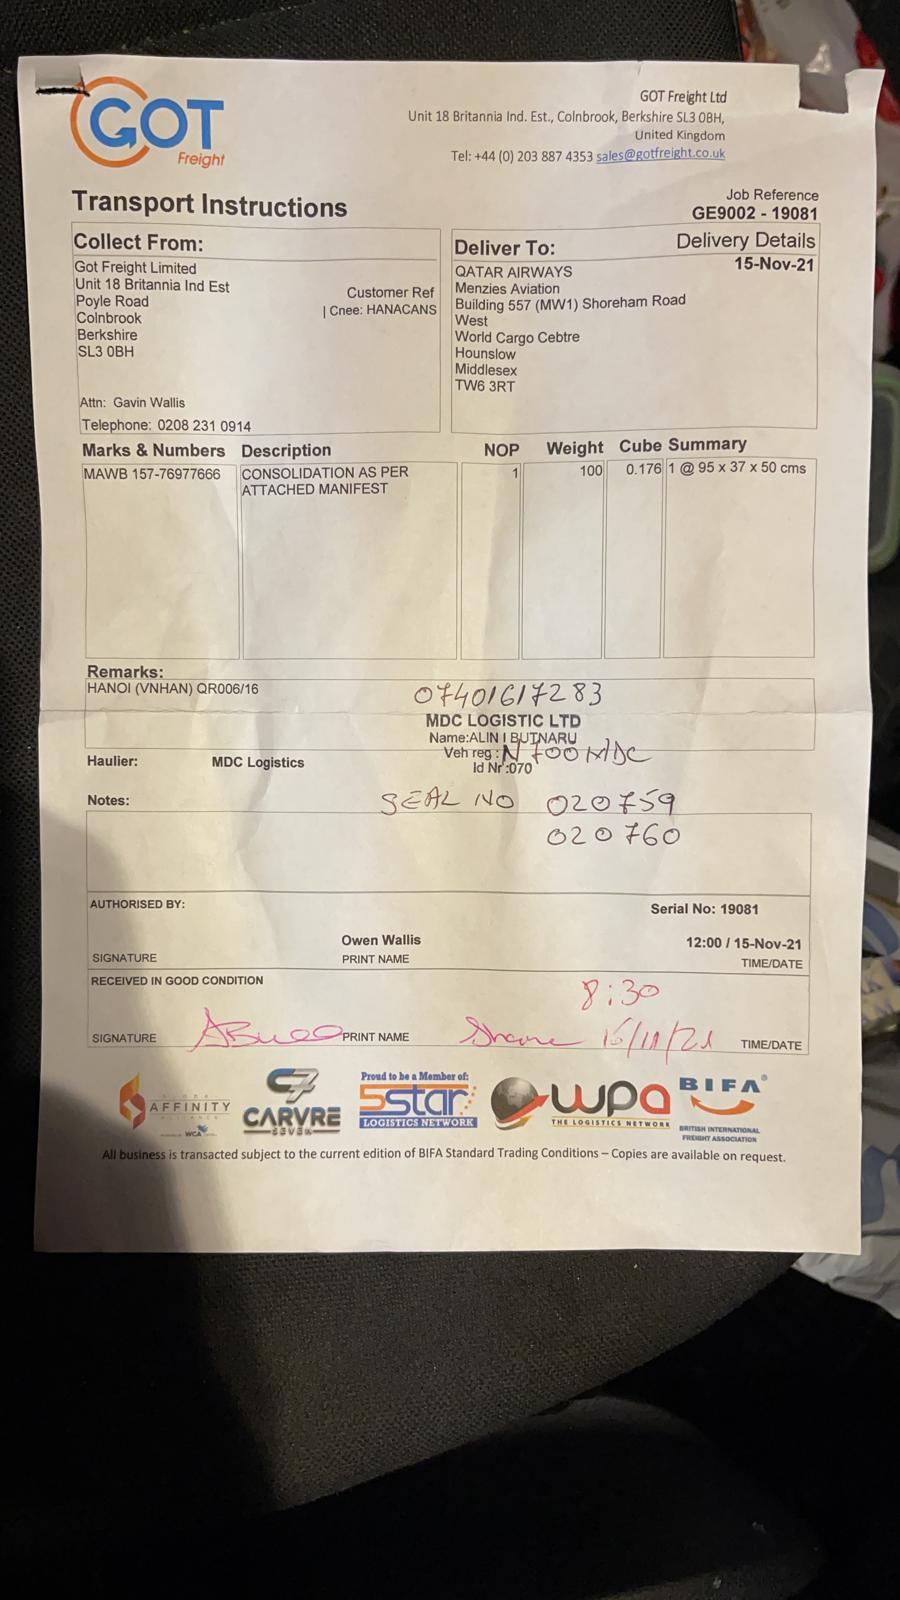 GOT
Freight
GOT Freight Ltd
Unit 18 Britannia Ind. Est., Colnbrook, Berkshire SL3 0BH,
United Kingdom
Tel: +44 (0) 203 887 4353 sales@gotfreight.co.uk
Transport Instructions
Job Reference
GE9002 - 19081
Collect From:
Got Freight Limited
Unit 18 Britannia Ind Est
Poyle Road
Colnbrook
Berkshire
SL3 0BH
Customer Ref
| Cnee: HANACANS
Attn: Gavin Wallis
Telephone: 0208 231 0914
Deliver To:
Delivery Details
15-Nov-21
QATAR AIRWAYS
Menzies Aviation
Building 557 (MW1) Shoreham Road
West
World Cargo Cebtre
Hounslow
Middlesex
TW6 3RT
Marks & Numbers Description NOP Weight Cube Summary
MAWB 157-76977666 CONSOLIDATION AS PER 1 100 0.176 1 @ 95 x 37 x 50 cms
ATTACHED MANIFEST
Remarks:
HANOI (VNHAN) QR006/16
07401617283
MDC LOGISTIC LTD
Name:ALIN I BUTNARU
Veh reg : N700MDC
Id Nr :070
Haulier: MDC Logistics
Notes:
SEAL NO 020759
020760
AUTHORISED BY:
Serial No: 19081
Owen Wallis 12:00 / 15-Nov-21
SIGNATURE PRINT NAME TIME/DATE
RECEIVED IN GOOD CONDITION
8:30
SIGNATURE PRINT NAME Shane 15/11/21 TIME/DATE
AFFINITY
WCA
CARVRE
SEVEN
Proud to be a Member of:
5star
LOGISTICS NETWORK
wpa
THE LOGISTICS NETWORK
BIFA
BRITISH INTERNATIONAL
FREIGHT ASSOCIATION
All business is transacted subject to the current edition of BIFA Standard Trading Conditions – Copies are available on request.